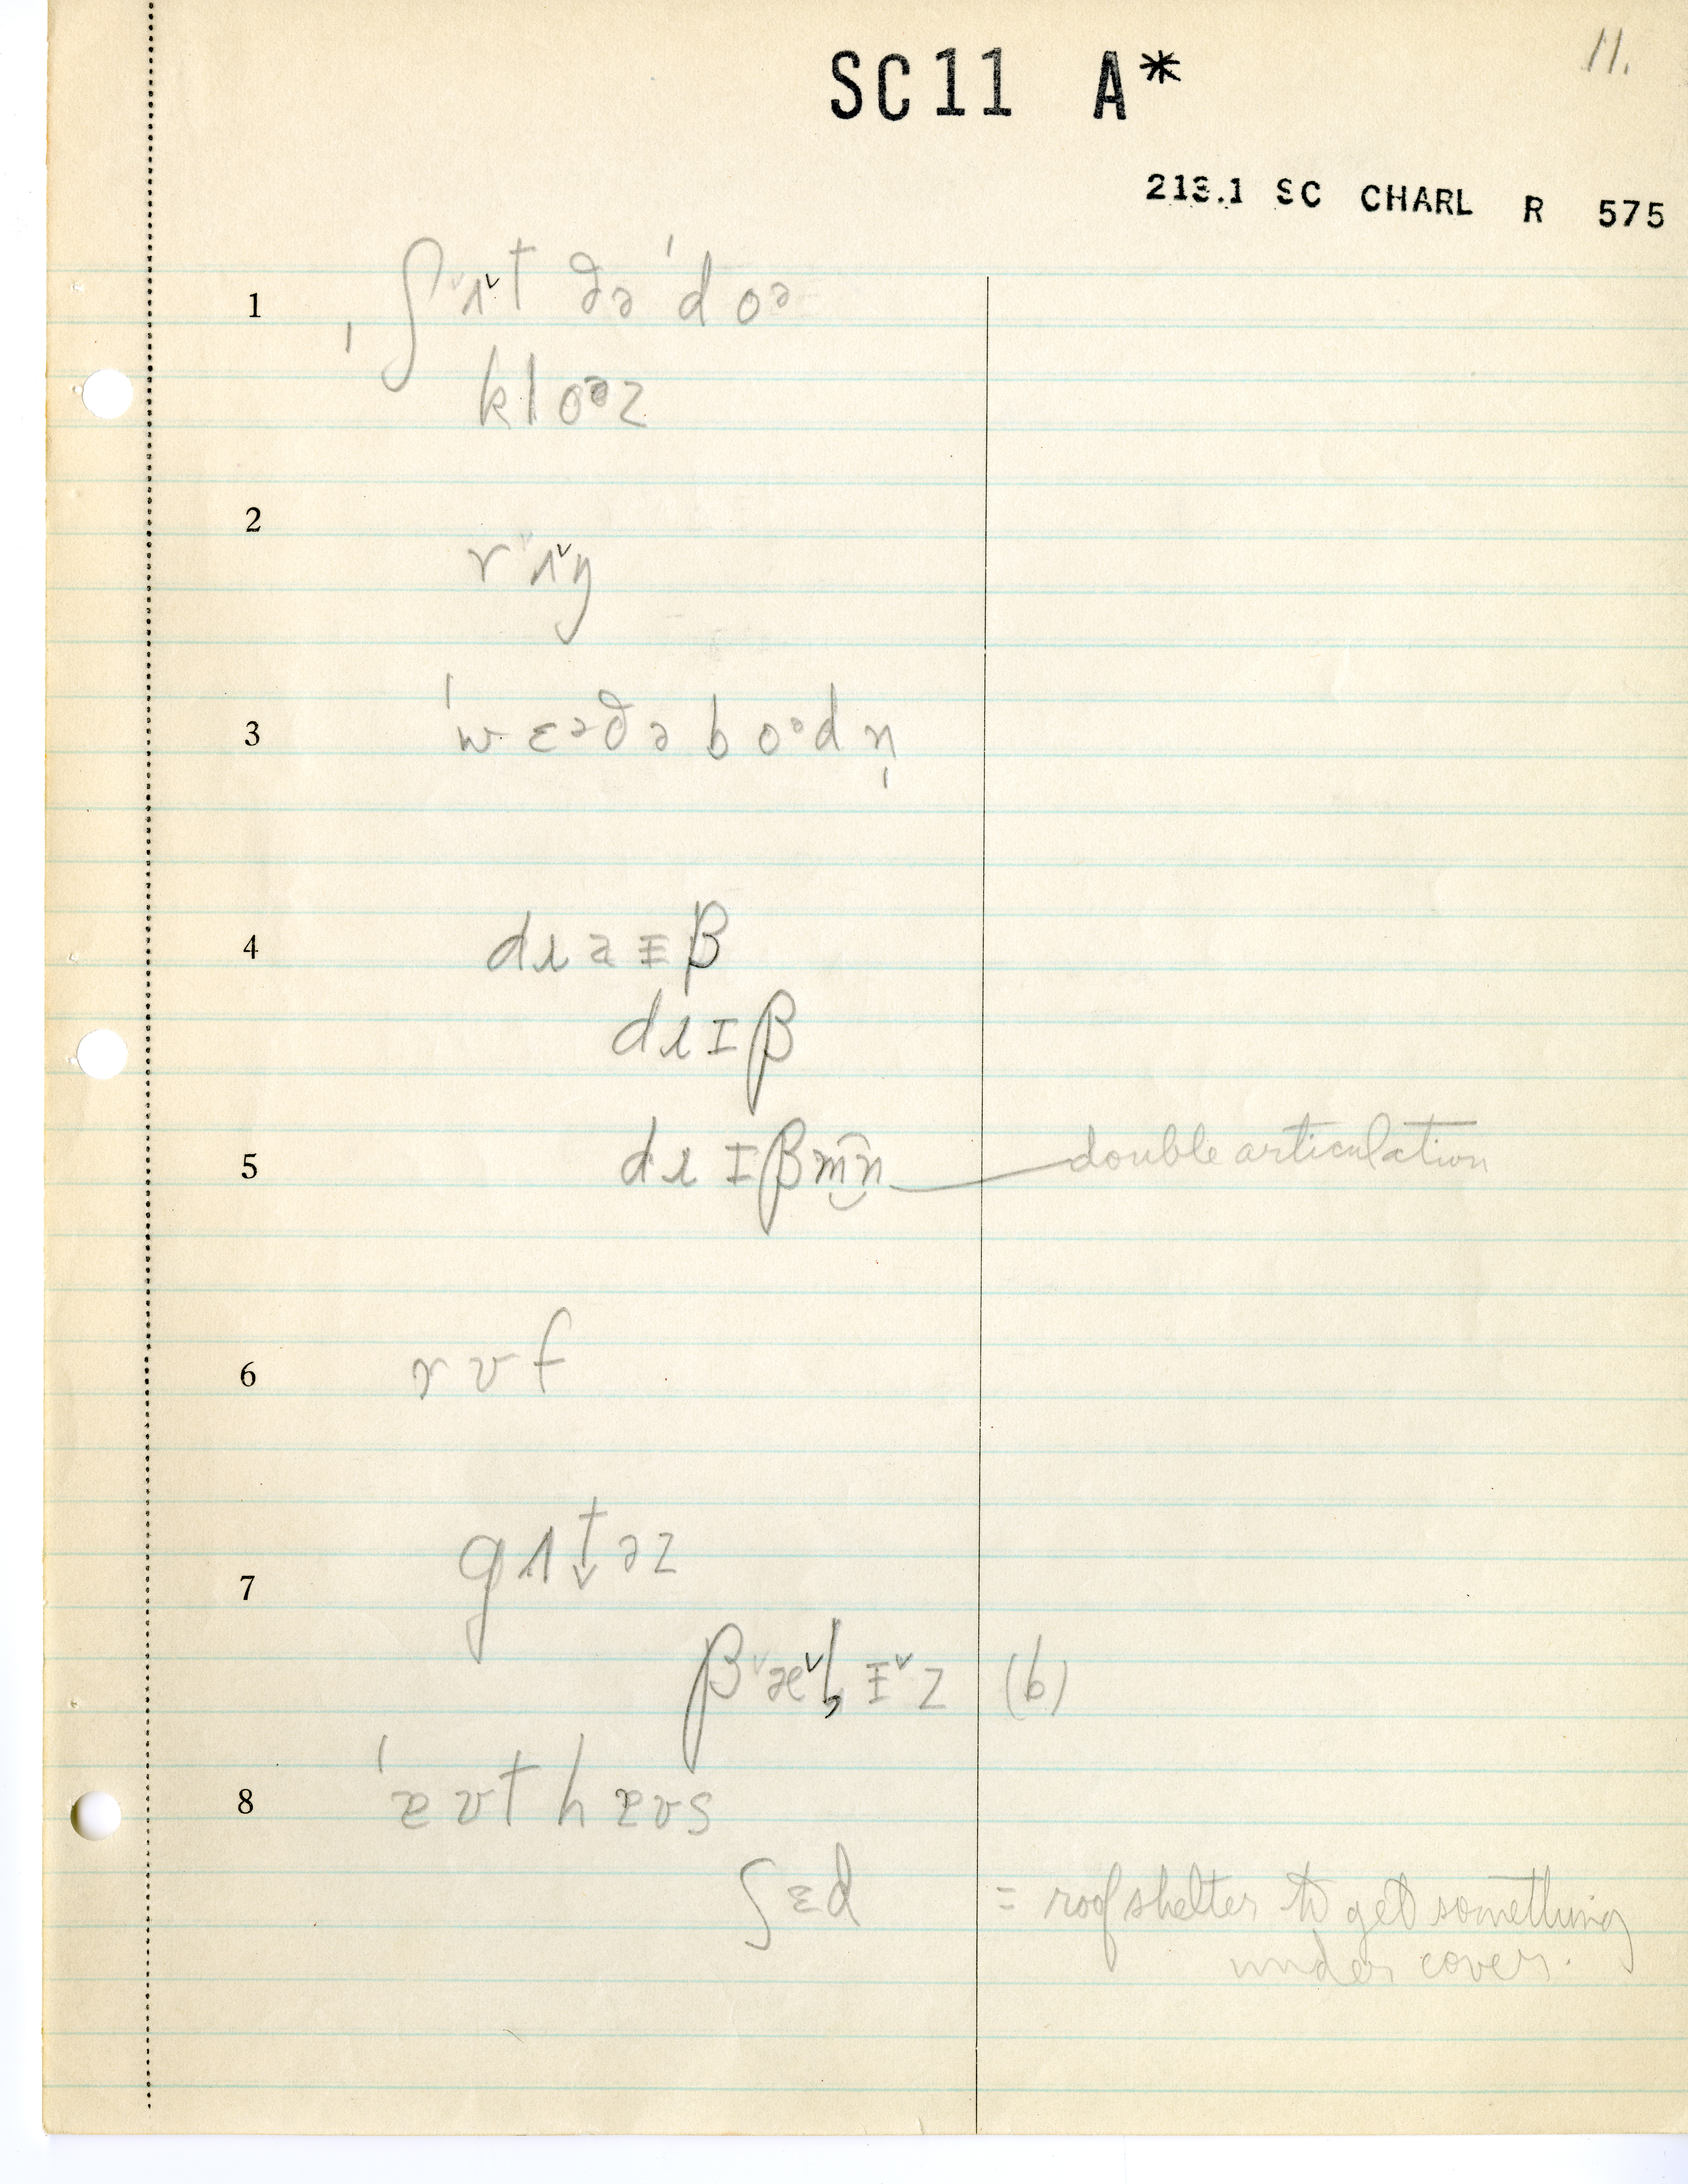 11.
SC11 A*
213.1 SC CHARL R 575
1 ˌʃᵛʌᵛt ðə ˈdoə
kloəz
2 rᵛʌᵛŋ
3 ˈwɛəðəboədn̩
4 draɪβ
drɪβ
5 drɪβm͡n double articulation
6 rʊf
7 gʌt̬əz
βᵛæᵛlɪᵛz (b)
8 ˈæʊthæʊs
ʃɛd = roof shelter to get something
under cover.